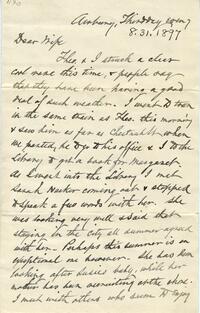 Avebury, Third day evg
8.31.1897
Dear Wife
Theo & I struck a clear
cool wave this time, & people say
that they have been having a good
deal of such weather. I went to town
in the same train as Theo. this morning
& saw him as far as Chestnut St. when
we parted, he to his office & I to the
Library to get a book for Margaret.
As I went into the Library I met
Sarah coming out & stopped
to speak a few words with her. She
was looking very well & said that
staying in the city all summer agreed
with her. Perhaps this summer is an
exceptional one however. She has been
looking after Susie's baby, while her
mother has been recruiting on the shore.
I met with others who seem to enjoy